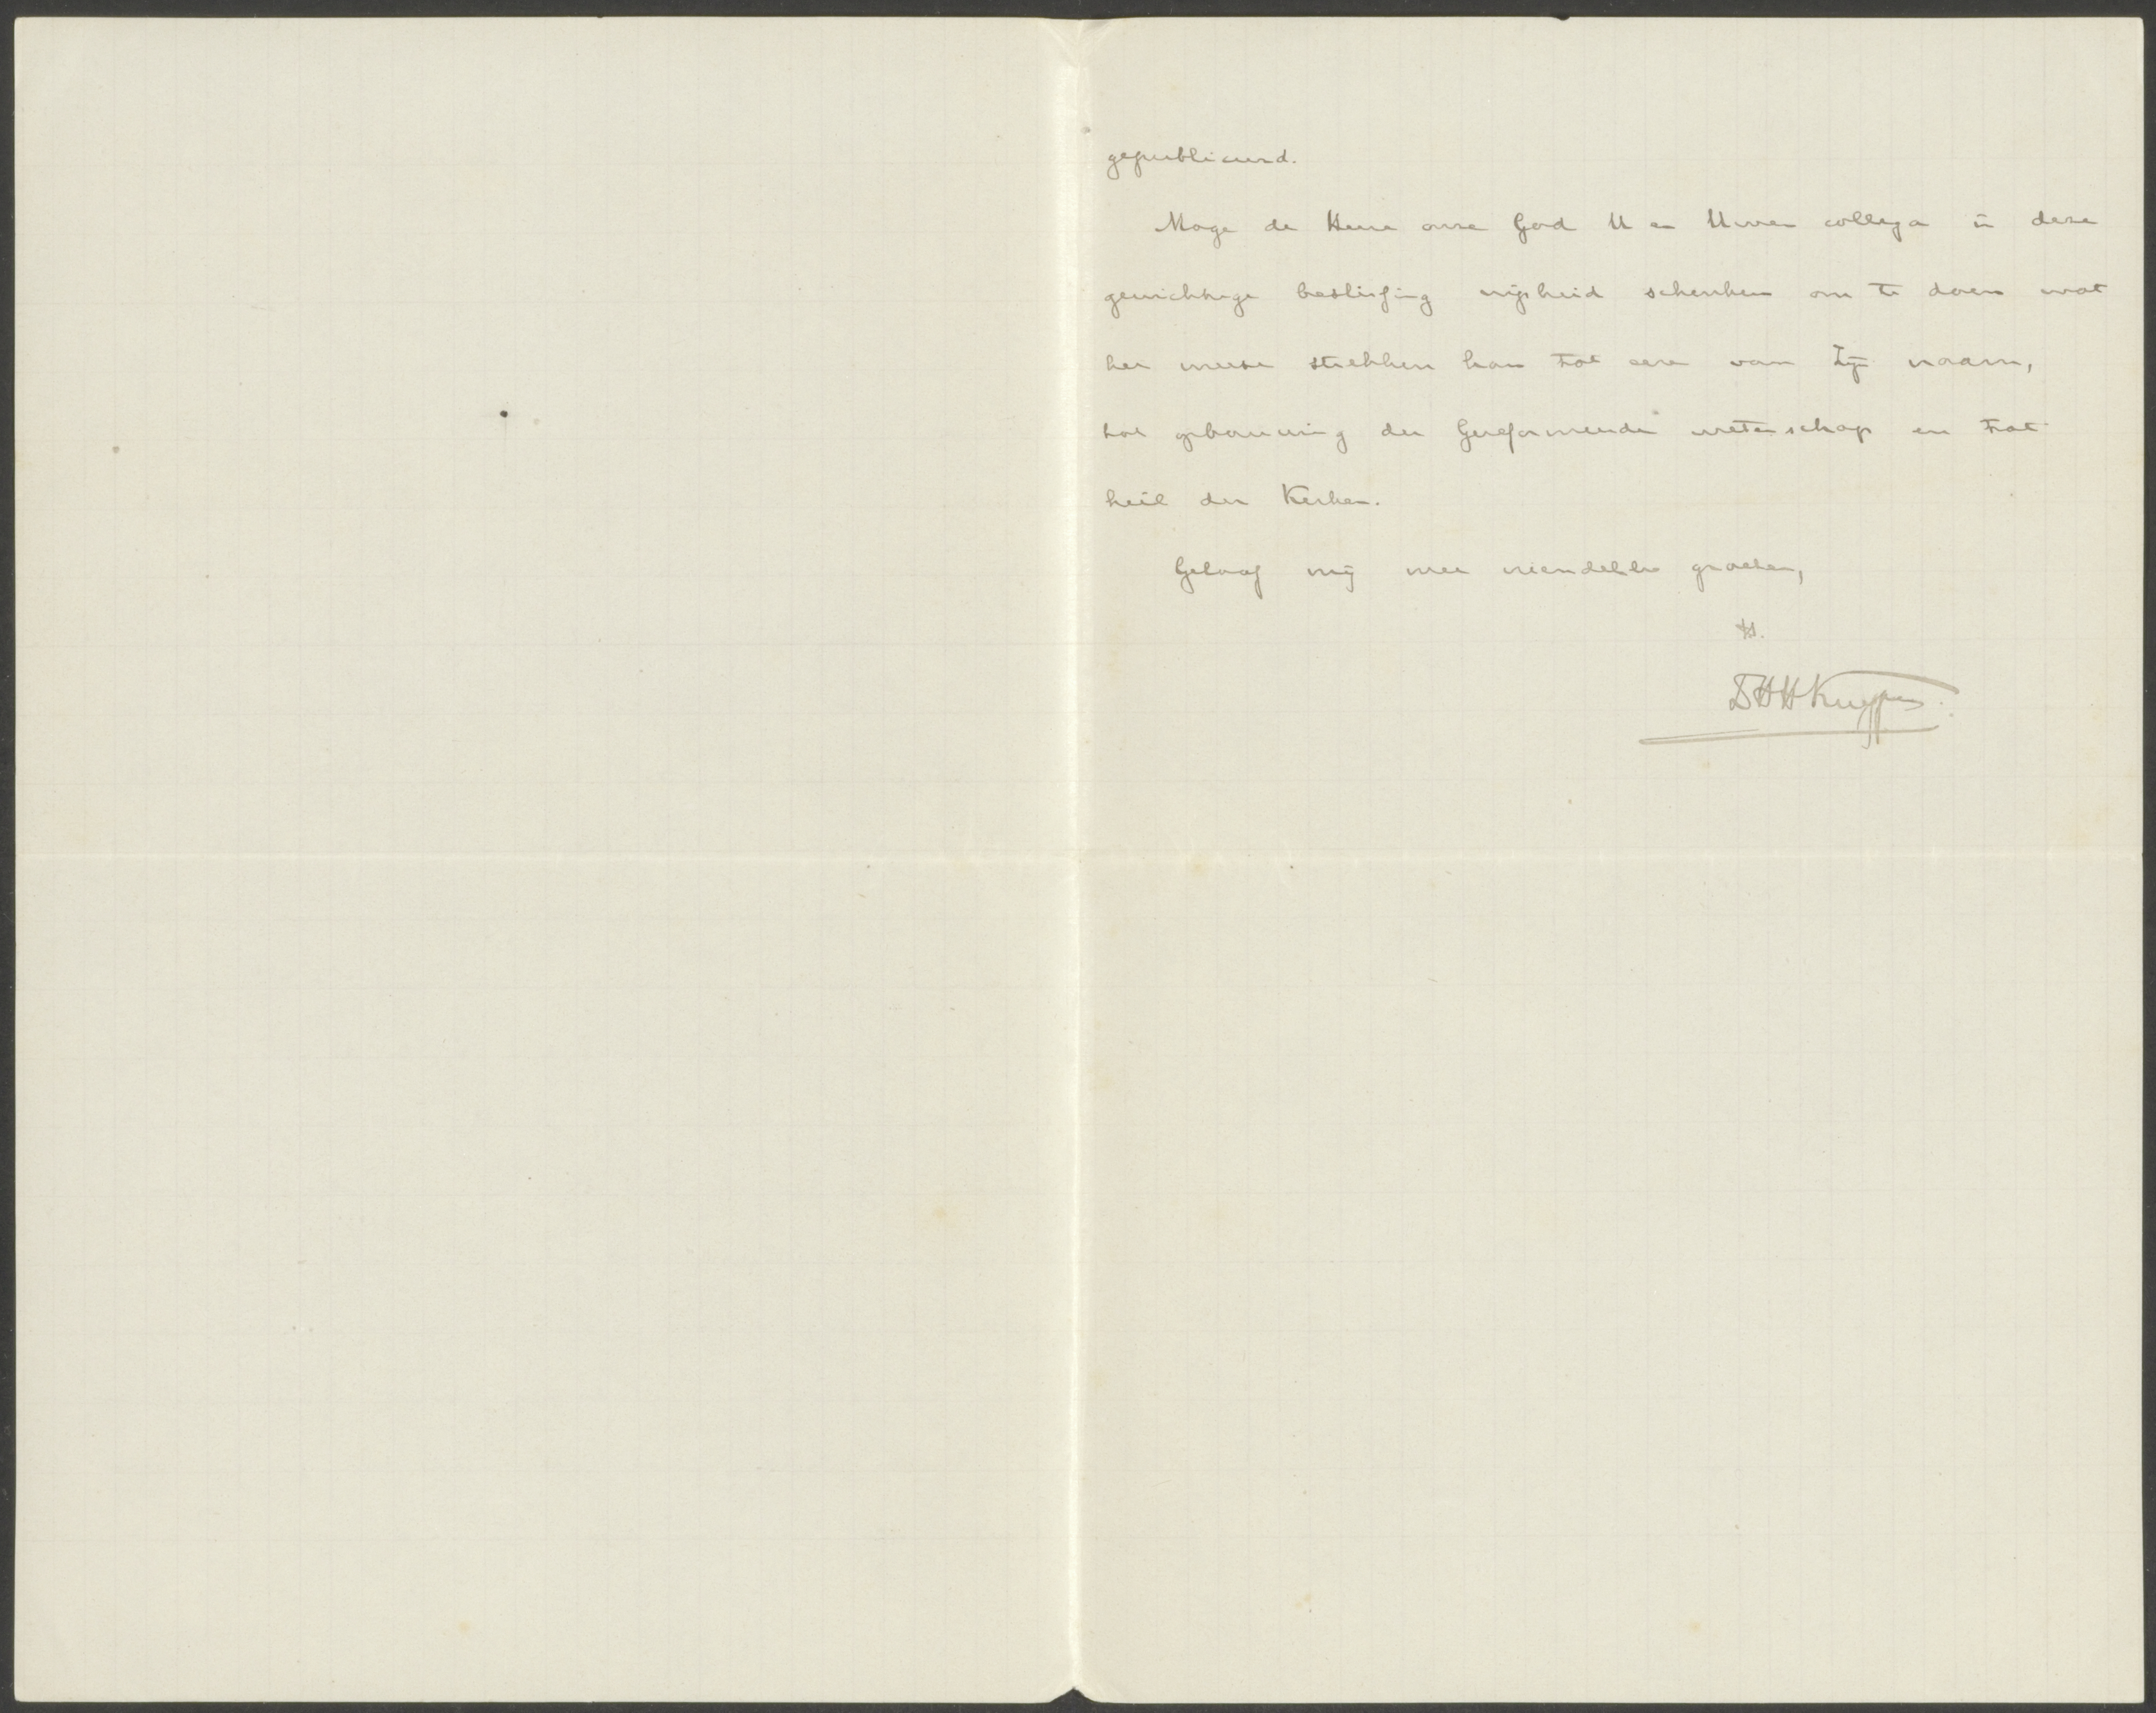 gepubliceerd.
Moge de Heere onze God U en Uwen collega in deze
gewichtige beslissing wijsheid schenken om te doen wat
het meest strekken kan tot eere van Zijn naam,
tot opbouwing der Gereformeerde wetenschap en tot
heil der Kerken.
Geloof mij met vriendelijke groeten,
tt.
Dr H H Kuyper.